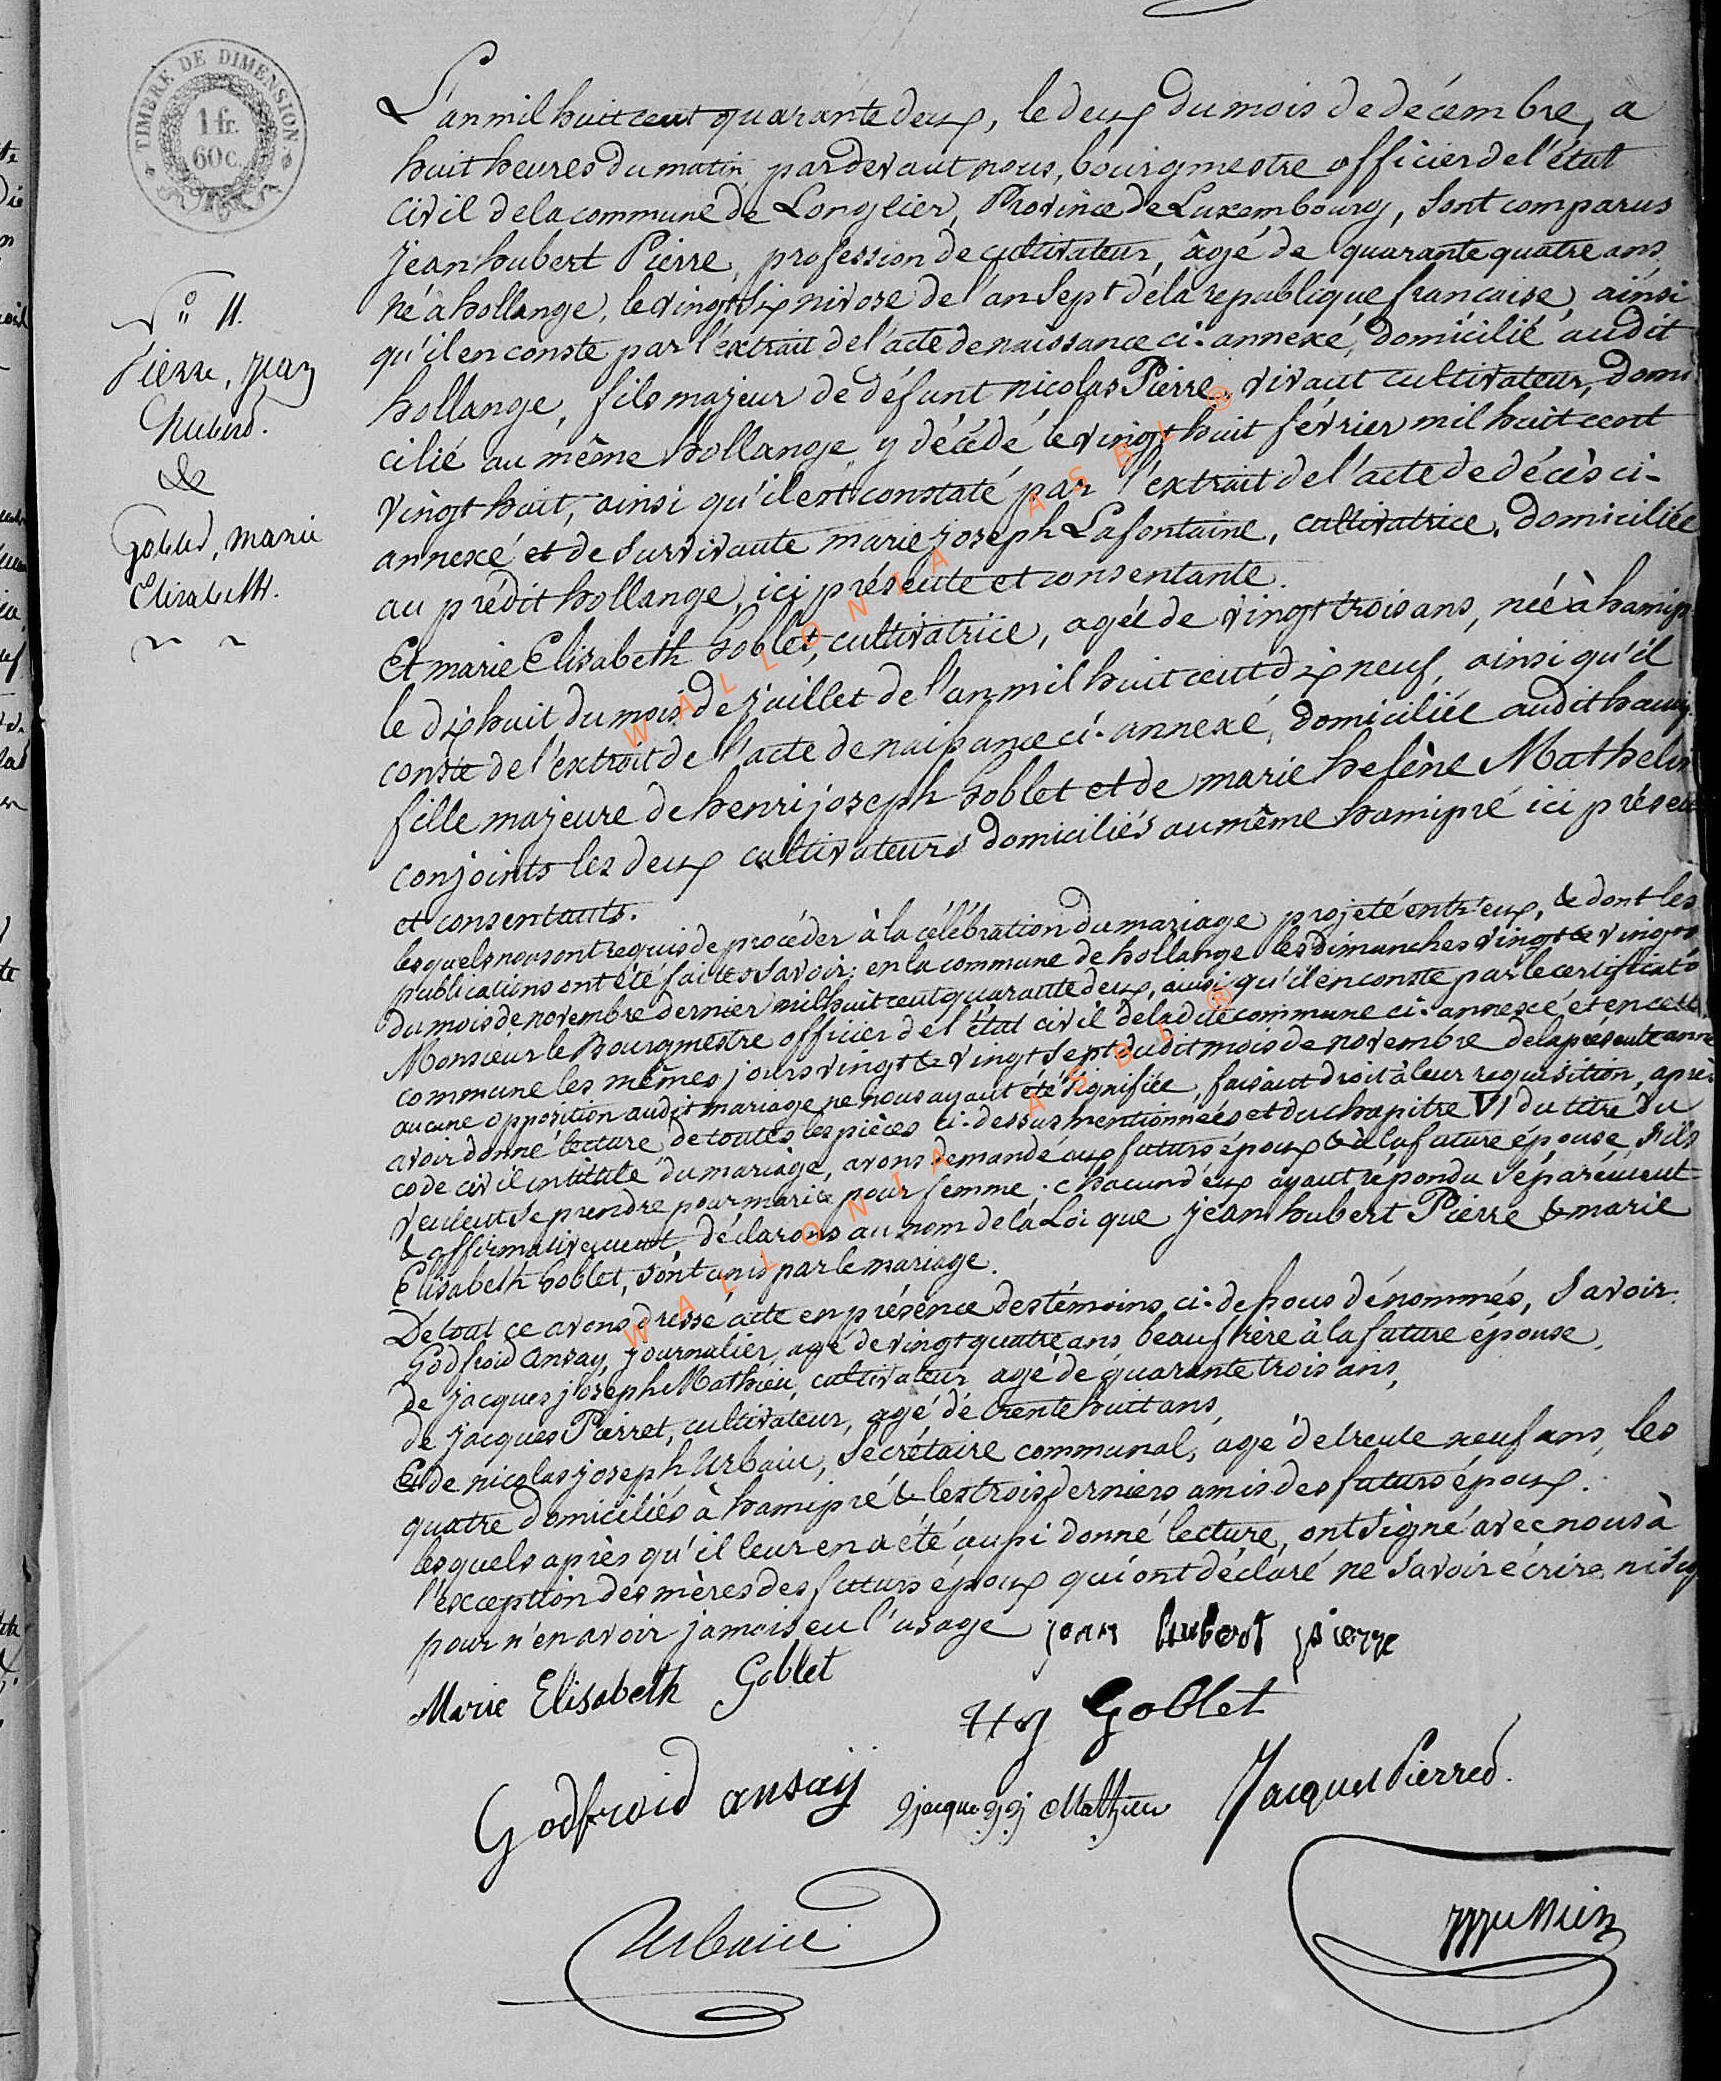 TIMBRE DE DIMENSION.
1 fr.
60 c.
N° 11.
Pierre, Jean
Hubert.
&
Goblet, Marie
Elisabeth.
L'an mil huit cent quarante deux, le deux du mois de décembre, a
huit heures du matin pardevant nous, bourgmestre officier de l'état
civil de la commune de Longlier, Province de Luxembourg, sont comparus
jean hubert Pierre, profession de cultivateur, âgé de quarante quatre ans
né a hollange, le vingt six nivose de l'an sept de la republique française, ainsi
qu'il en conste par l'extrait de l'acte de naissance ci-annexé, domicilié audit
hollange, fils majeur de défunt nicolas Pierre, vivant cultivateur, domi
cilié au même hollange, y décédé le vingt huit février mil huit cent
vingt huit, ainsi qu'il est constaté par l'extrait de l'acte de décès ci-
annexé et de survivante marie joseph Lafontaine, cultivatrice, domiciliée
au prédit hollange, ici présente et consentante.
Et marie Elisabeth Goblet, cultivatrice, agée de vingt trois ans, née à hamip
le dix huit du mois de juillet de l'an mil huit cent dix neuf, ainsi qu'il
conste de l'extrait de l'acte de naissance ci-annexé, domiciliée audit hamip
fille majeure de henri joseph Goblet et de marie helène Mathelin
conjoints les deux cultivateurs domiciliés au même hamipré ici présen
et consentants.
lesquels nous ont requis de procéder à la célébration du mariage projeté entr'eux, & dont les
publications ont été faites savoir: en la commune de hollange les dimanches vingt & vingt
du mois de novembre dernier mil huit cent quarante deux, ainsi qu'il en conste par le certificat
Monsieur le Bourgmestre officier de l'état civil de ladite commune ci-annexé et en cette
commune les mêmes jours vingt & vingt sept dudit mois de novembre de la présente année
aucune opposition audit mariage ne nous ayant été signifiée, faisant droit à leur requisition, après
avoir donné lecture de toutes les pièces ci-dessus mentionnées et du chapitre VI du titre du
code civil intitulé du mariage, avons demandé aux futurs époux & à la future épouse, s'ils
veulent se prendre pour mari & pour femme; chacun d'eux ayant répondu séparément
& affirmativement, déclarons au nom de la Loi que jean hubert Pierre & marie
Elisabeth Goblet, sont unis par le mariage.
De tout ce avons dressé acte en présence des témoins ci-dessous dénommés, Savoir:
Godfroid Ansay, journalier, agé de vingt quatre ans, beau frère à la future épouse,
De jacques joseph Mathieu, cultivateur agé de quarante trois ans,
de jacques Pierret, cultivateur, agé de trente huit ans,
Et de nicolas joseph Urbain, Secrétaire communal, agé de trente neuf ans, les
quatre domiciliés à hamipré & les trois derniers amis des futurs époux.
lesquels après qu'il leur en a été aussi donné lecture, ont signé avec nous à
l'exception des mères des futurs époux qui ont déclaré ne savoir écrire ni sig
pour n'en avoir jamais eu l'usage jean hubert pierre
Marie Elisabeth Goblet
Goblet
Godfroid ansay jacque j Mathieu Jacques Pierred.
Urbain
WALLONIA ASBL ®
WALLONIA ASBL ®